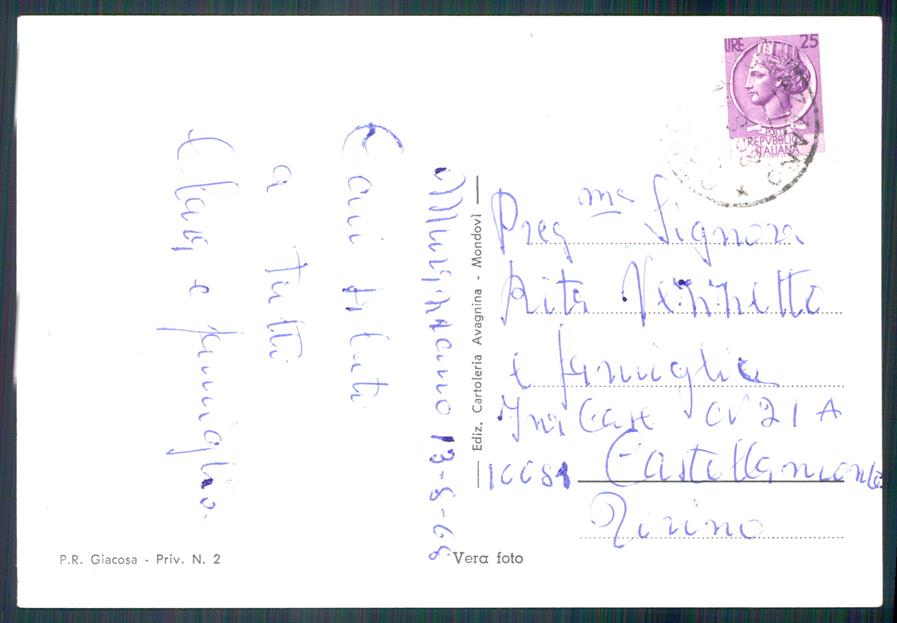 LIRE 25
REPVBBLICA
ITALIANA
Murazzano 13-8-68
Cari saluti
a tutti
e famiglia
Preg ma Signora
Rita
e famiglia
Ina Case CV 21 A
10081 Castellamonte
Torino
Ediz. Cartoleria Avagnina - Mondovì
P.R. Giacosa - Priv. N. 2
Vera foto